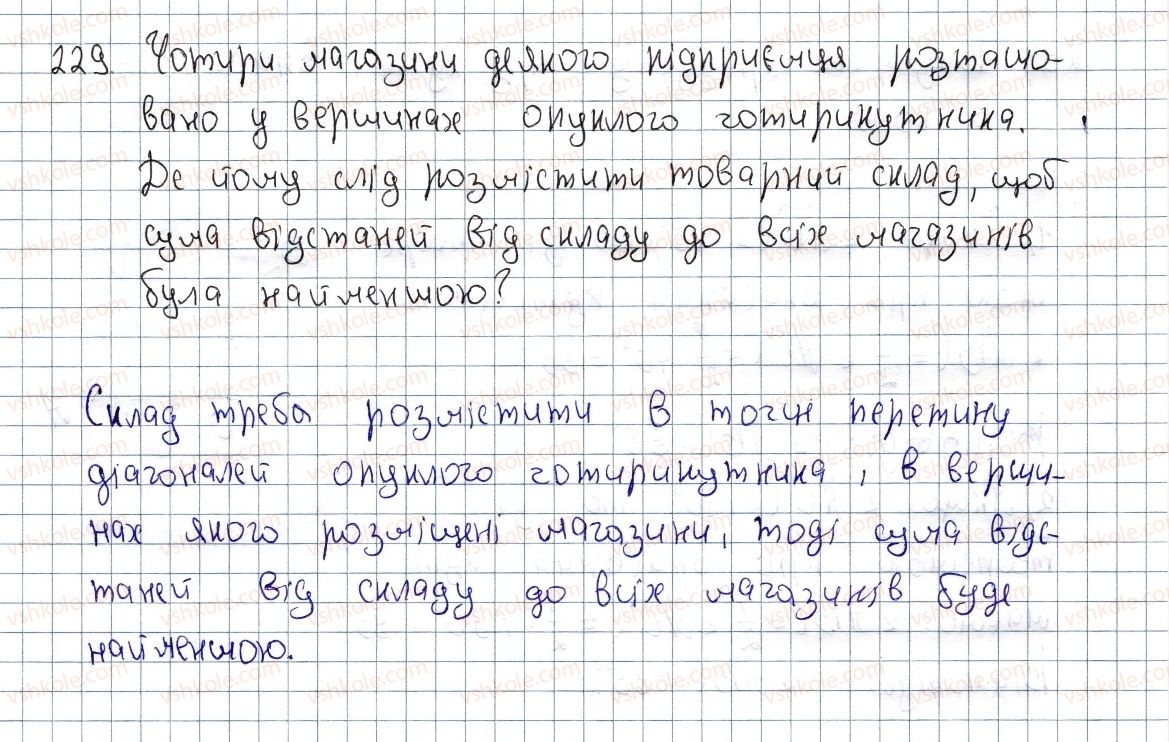 229 Чотири магазини деякого підприємця розташо-
вано у вершинах опуклого чотирикутника.
Де йому слід розмістити товарний склад, щоб
сума відстаней від складу до всіх магазинів
була найменшою?
Склад треба розмістити в точці перетину
діагоналей опуклого чотирикутника, в верши-
нах якого розміщені магазини, тоді сума відс-
таней від складу до всіх магазинів буде
найменшою.
vshkole.com